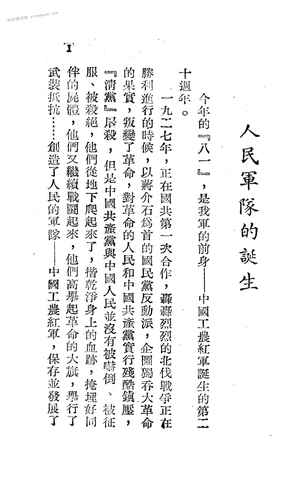 人民軍隊的誕生
今年的『八一』,是我軍的前身——中國工農紅軍誕生的第二
十週年。
一九二七年,正在國共第一次合作,轟轟烈烈的北伐戰爭正在
勝利進行的時候,以蔣介石爲首的國民黨反動派,企圖獨吞大革命
的果實,叛變了革命,對革命的人民和中國共產黨實行殘酷鎮壓,
『清黨』屠殺,但是中國共產黨與中國人民並沒有被嚇倒、被征
服、被殺絕,他們從地下爬起來了,揩乾淨身上的血跡,掩埋好同
伴的屍體,他們又繼續戰鬪起來,他們高舉起革命的大旗,舉行了
武裝抵抗……創造了人民的軍隊——中國工農紅軍,保存並發展了
1